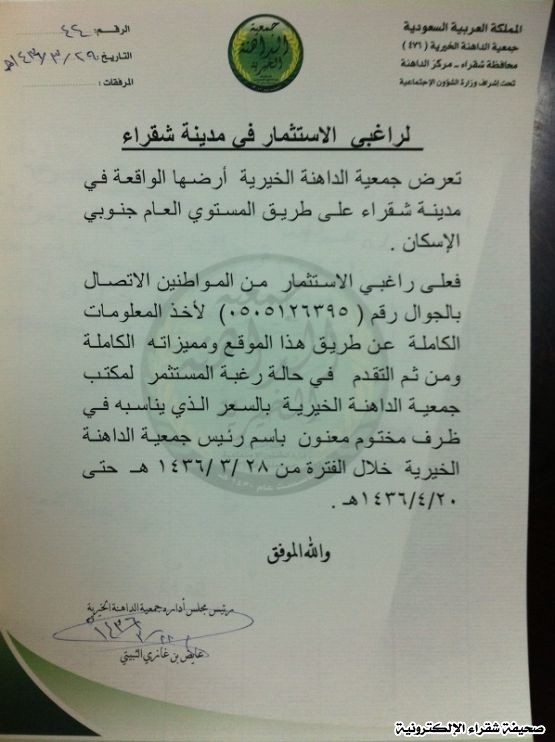 المملكة العربية السعودية
جمعية الداهنة الخيرية (٤٧٦)
محافظة شقراء - مركز الداهنة
تحت إشراف وزارة الشؤون الإجتماعية
جمعية
الداهنة
الخيرية
الرقم: ٤٤
التاريخ: ١٤٣٦/٣/٢٩هـ
المرفقات:
لراغبي الاستثمار في مدينة شقراء
تعرض جمعية الداهنة الخيرية أرضها الواقعة في
مدينة شقراء على طريق المستوي العام جنوبي
الإسكان .
فعلى راغبي الاستثمار من المواطنين الاتصال
بالجوال رقم ( ٠٥٠٥١٢٦٣٩٥ ) لأخذ المعلومات
الكاملة عن طريق هذا الموقع ومميزاته الكاملة
ومن ثم التقدم في حالة رغبة المستثمر لمكتب
جمعية الداهنة الخيرية بالسعر الذي يناسبه في
ظرف مختوم معنون باسم رئيس جمعية الداهنة
الخيرية خلال الفترة من ١٤٣٦/٣/٢٨ هـ حتى
١٤٣٦/٤/٢٠هـ .
والله الموفق
رئيس مجلس أداره جمعية الداهنة الخيرية
عايض بن غازي الثبيتي
صحيفة شقراء الإلكترونية